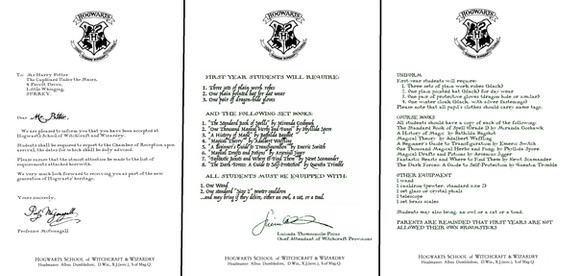 HOGWARTS
To Mr Harry Potter
The Cupboard Under the Stairs,
4 Privet Drive,
Little Whinging,
SURREY.
Dear Mr. Potter,
We are pleased to inform you that you have been accepted at
Hogwarts School of Witchcraft and Wizardry.
Students shall be required to report to the Chamber of Reception upon
arrival, the dates for which shall be duly advised.
Please ensure that the utmost attention be made to the list of
requirements attached herewith.
We very much look forward to receiving you as part of the new
generation of Hogwarts' heritage.
Yours sincerely,
Prof. McGonagall
Professor McGonagall
HOGWARTS SCHOOL OF WITCHCRAFT & WIZARDRY
Headmaster: Albus Dumbledore,
HOGWARTS
FIRST YEAR STUDENTS WILL REQUIRE:
1. Three sets of plain work robes
2. One plain pointed hat for day wear
3. One pair of dragon-hide gloves
AND THE FOLLOWING SET BOOKS:
1. "The Standard Book of Spells" by Miranda Goshawk
2. "One Thousand Magical Herbs and Fungi" by Phyllida Spore
3. "A History of Magic" by Bathilda Bagshot
4. "Magical Theory" by Adalbert Waffling
5. "A Beginner's Guide to Transfiguration" by Emeric Switch
6. "Magical Drafts and Potions" by Arsenius Jigger
7. "Fantastic Beasts and Where to Find Them" by Newt Scamander
8. "The Dark Forces: A Guide to Self-Protection" by Quentin Trimble
ALL STUDENTS MUST BE EQUIPPED WITH:
1. One Wand
2. One standard "Size 2" pewter cauldron
and may bring if they desire, either an owl, a cat, or a toad.
Lucinda Thomsonicle-Pocus
Chief Attendant of Witchcraft Provisions
HOGWARTS SCHOOL OF WITCHCRAFT & WIZARDRY
Headmaster: Albus Dumbledore,
HOGWARTS
UNIFORM
First-year students will require:
1. Three sets of plain work robes (black)
2. One plain pointed hat (black) for day wear
3. One pair of protective gloves (dragon hide or similar)
4. One winter cloak (black, with silver fastenings)
Please note that all pupil's clothes should carry name tags.
COURSE BOOKS
All students should have a copy of each of the following:
The Standard Book of Spells (Grade 1) by Miranda Goshawk
A History of Magic by Bathilda Bagshot
Magical Theory by Adalbert Waffling
A Beginner's Guide to Transfiguration by Emeric Switch
One Thousand Magical Herbs and Fungi by Phyllida Spore
Magical Drafts and Potions by Arsenius Jigger
Fantastic Beasts and Where to Find Them by Newt Scamander
The Dark Forces: A Guide to Self-Protection by Quentin Trimble
OTHER EQUIPMENT
1 wand
1 cauldron (pewter, standard size 2)
1 set glass or crystal phials
1 telescope
1 set brass scales
Students may also bring an owl or a cat or a toad.
PARENTS ARE REMINDED THAT FIRST YEARS ARE NOT
ALLOWED THEIR OWN BROOMSTICKS
HOGWARTS SCHOOL OF WITCHCRAFT & WIZARDRY
Headmaster: Albus Dumbledore,